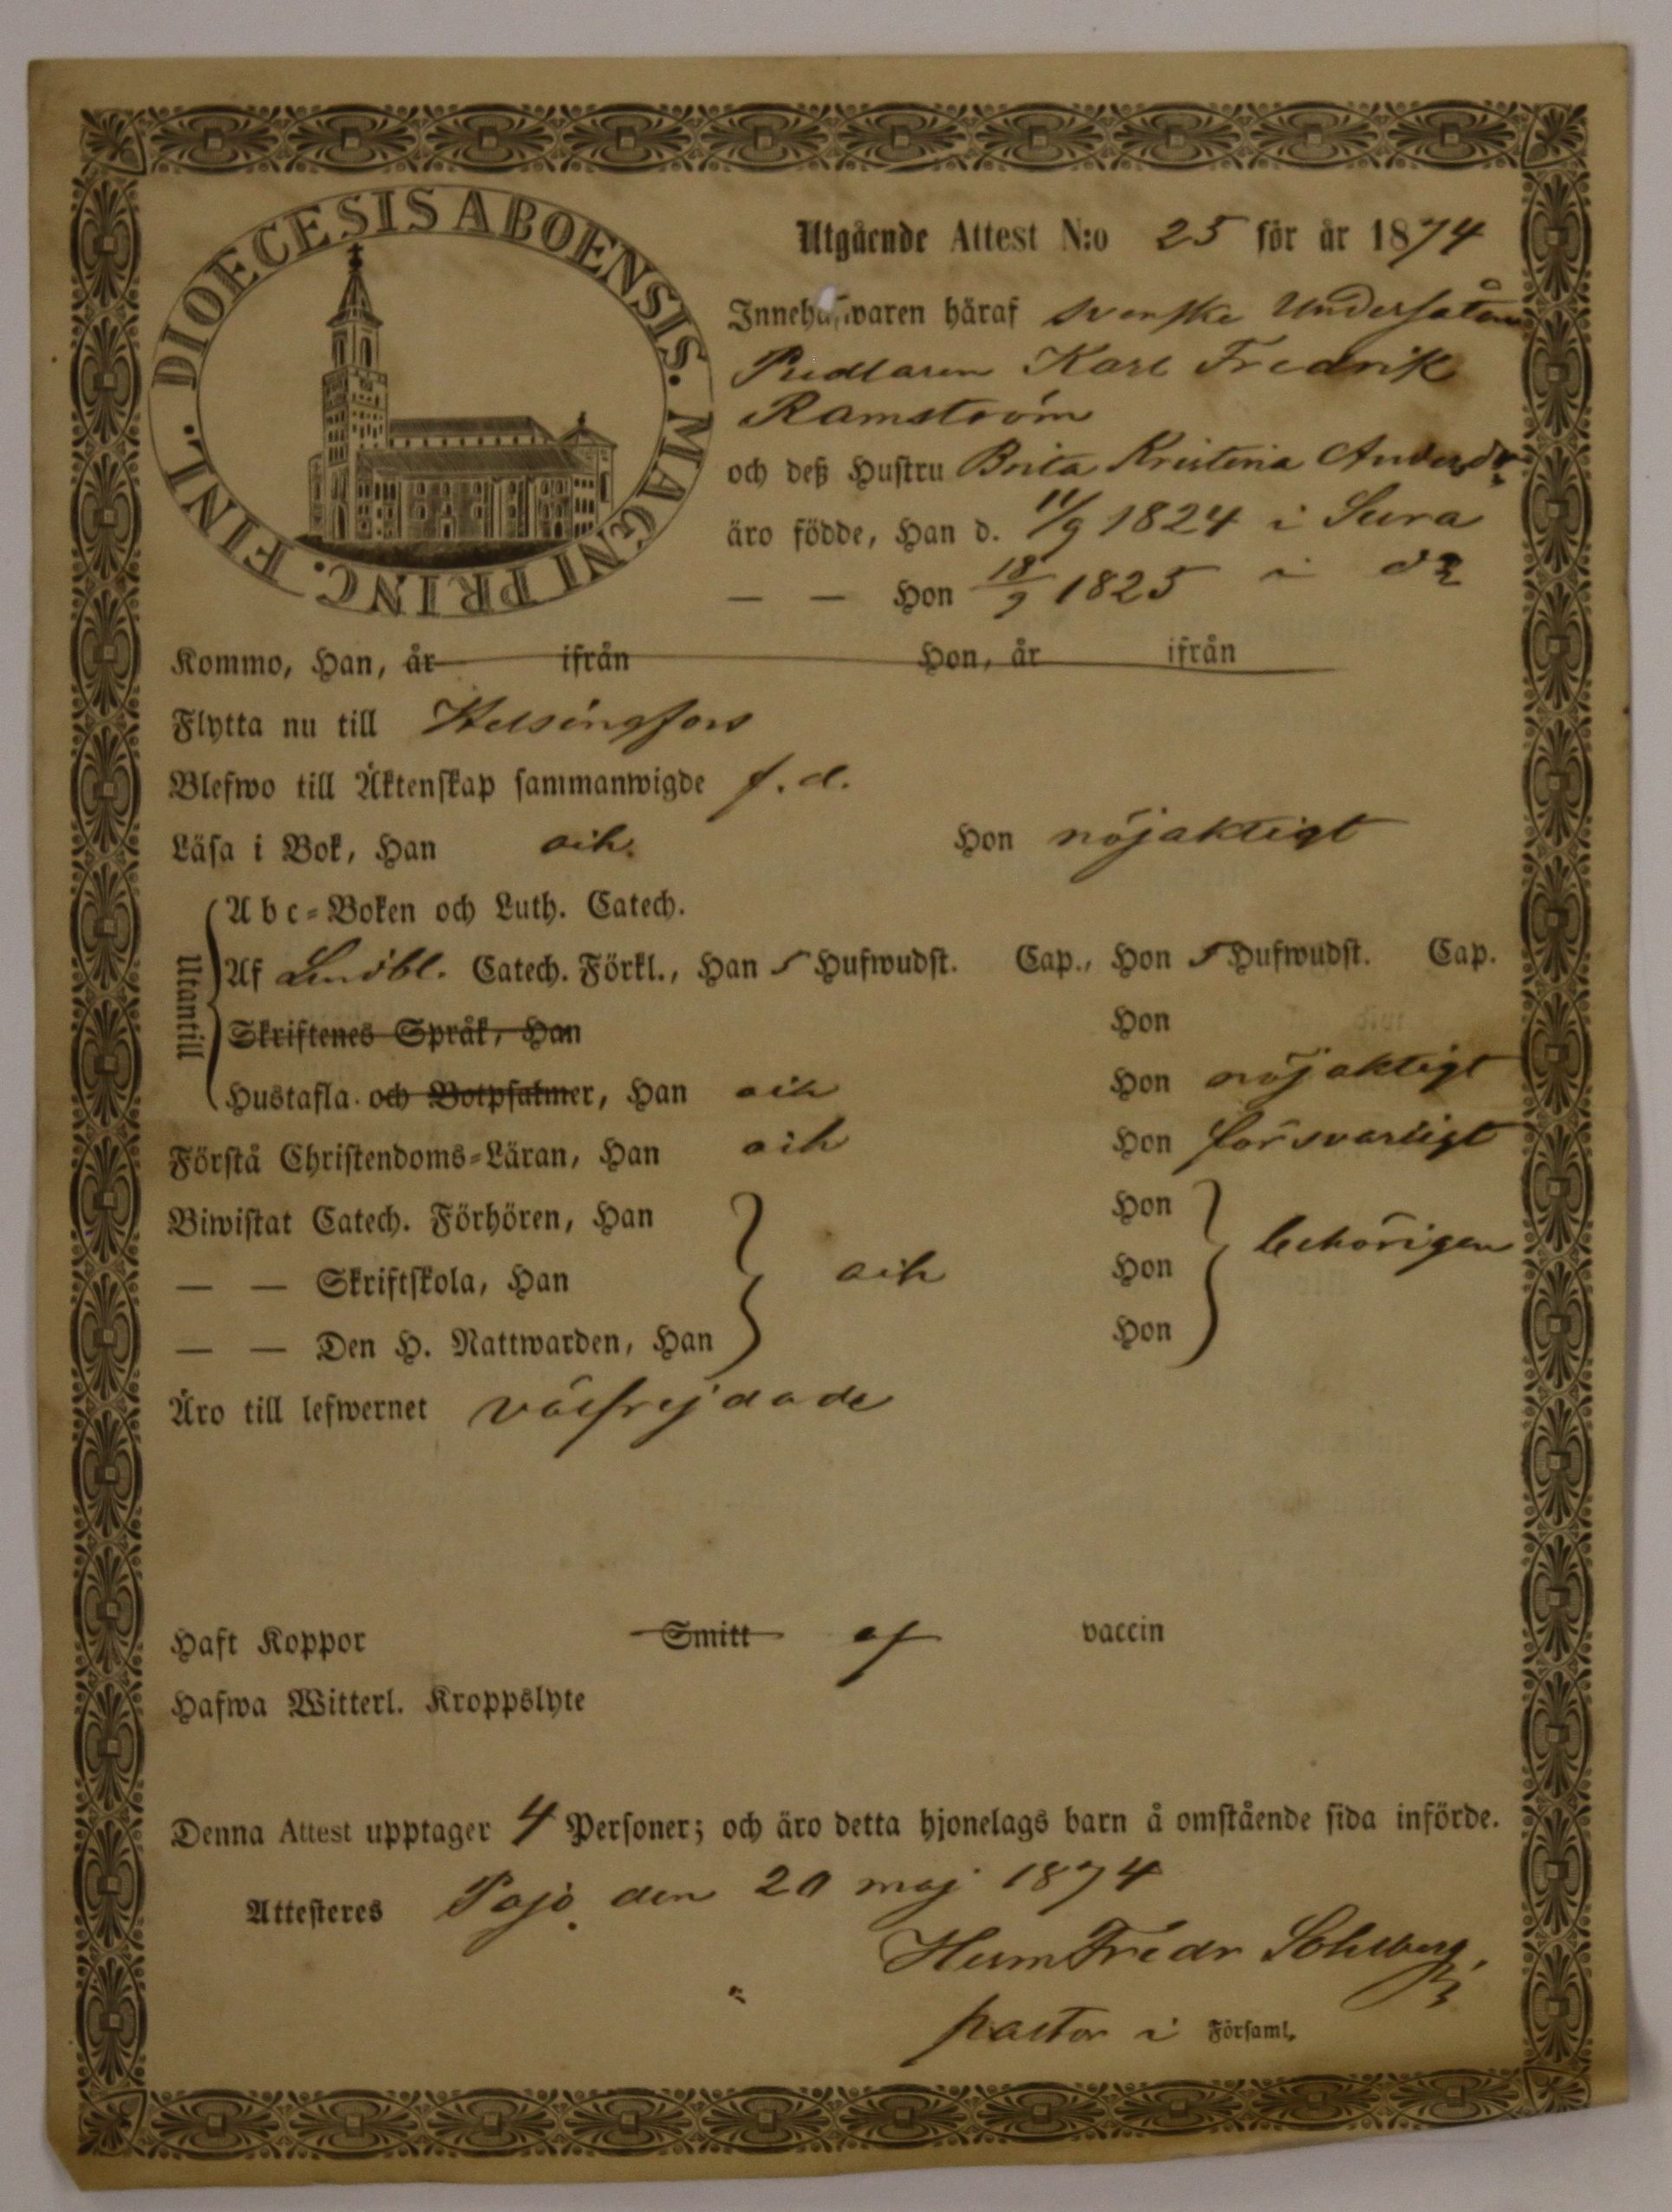 DIOECESIS ABOENSIS. MAGNI PRINC. FINL.
Utgående Attest N:o 25 för år 1874
Innehafwaren häraf svenske Undersåten
Pudlaren Karl Fredrik
Ramström
och deß Hustru Brita Kristina Andersdr
äro födde, Han d. 11/9 1824 i Sura
— — Hon 18/9 1825 i do
Kommo, Han, år ifrån Hon, år ifrån
Flytta nu till Helsingfors
Blefwo till Äktenskap sammanwigde f. d.
Läsa i Bok, Han och Hon nöjaktigt
Utantill
Abc-Boken och Luth. Catech.
Af Lindbl. Catech. Förkl., Han 5 Hufwudst. Cap., Hon 5 Hufwudst. Cap.
Skriftenes Språk, Han Hon
Hustafla och Botpsalmer, Han och Hon nöjaktigt
Förstå Christendoms-Läran, Han och Hon försvarligt
Biwistat Catech. Förhören, Han Hon
— — Skriftskola, Han och Hon behörigen
— — Den H. Nattwarden, Han Hon
Äro till lefwernet välfrejdade
Haft Koppor Smitt af vaccin
Hafwa Witterl. Kroppslyte
Denna Attest upptager 4 Personer; och äro detta hjonelags barn å omstående sida införde.
Attesteres Pojo den 20 maj 1874
Herm Fredr Sohlberg
pastor i Församl.